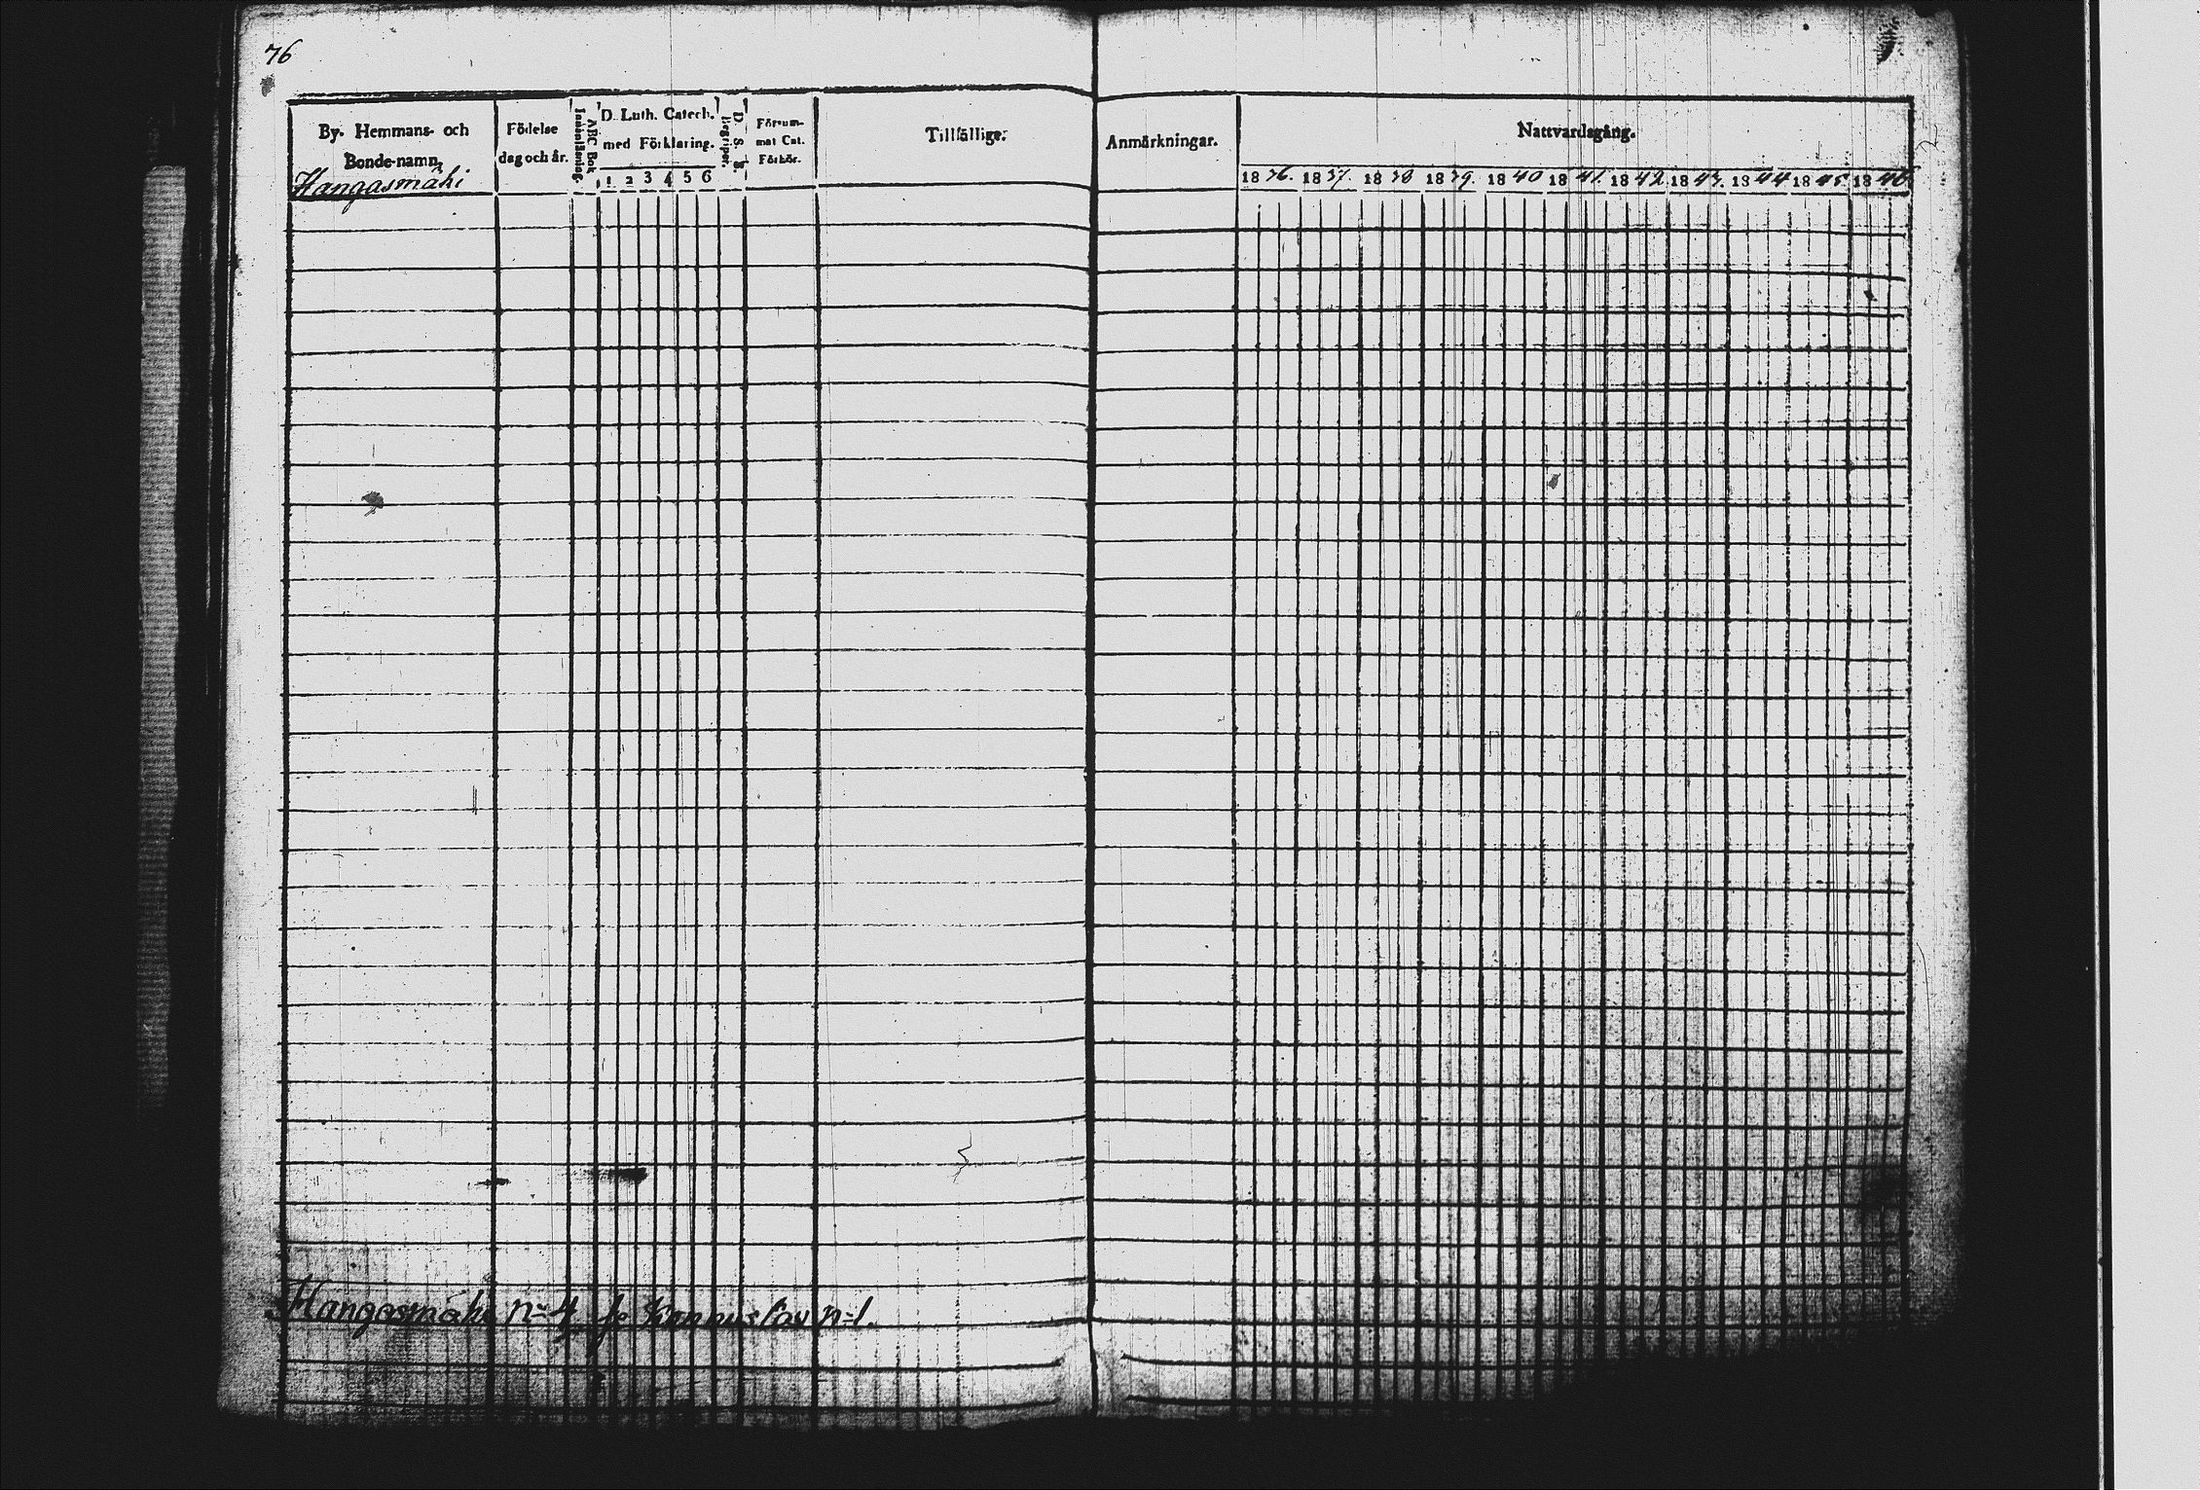 76
By- Hemmans- och
Bonde-namn.
Hangasmäki
Födelse
dag och år.
ABC Bok
Innanläsning.
D. Luth. Catech.
med Förklaring.
1 2 3 4 5 6
D. S. B.
Begriper.
Försum-
mat Cat.
Förhör.
Tillfällige.
Anmärkningar.
Nattvardsgång.
1836. 1837. 1838 1839. 1840 1841. 1842. 1843. 1844 1845. 1846
Hangasmäki n=4 Kannuslax n=1.